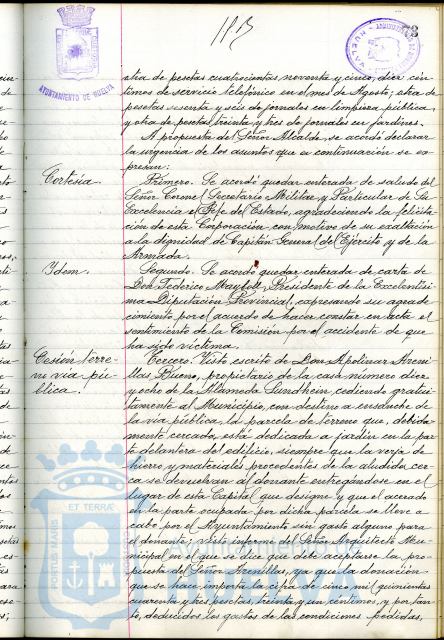 AYUNTAMIENTO DE HUELVA
73
otra de pesetas cuatrocientas noventa y cinco, diez cén-
timos de servicio telefónico en el mes de Agosto; otra de
pesetas sesenta y seis de jornales en limpieza pública,
y otra de pesetas treinta y tres de jornales en jardines.
A propuesta del Señor Alcalde, se acordó declarar
la urgencia de los asuntos que a continuación se ex-
presan:
Cortesía
Primero. Se acordó quedar enterada de saludo del
Señor Coronel Secretario Militar y Particular de Su
Excelencia el Jefe del Estado, agradeciendo la felicita-
ción de esta Corporación con motivo de su exaltación
a la dignidad de Capitán General del Ejército y de la
Armada.
Idem.
Segundo. Se acordó quedar enterada de carta de
Don Federico Mayboll, Presidente de la Excelentísi-
ma Diputación Provincial, expresando su agrade-
cimiento por el acuerdo de hacer constar en acta el
sentimiento de la Comisión por el accidente de que
ha sido víctima.
Cesión terre-
no vía pú-
blica.
Tercero. Visto escrito de Don Apolinar Areni-
llas Bueno, propietario de la casa número diez
y ocho de la Alameda Sundhein, cediendo gratui-
tamente al Municipio, con destino a ensanche de
la vía pública, la parcela de terreno que, debida-
mente cercada, está dedicada a jardín en la par-
te delantera del edificio, siempre que la verja de
hierro y materiales procedentes de la aludida cer-
ca se devuelvan al donante entregándose en el
lugar de esta Capital que designe y que el acerado
en la parte ocupada por dicha parcela se lleve a
cabo por el Ayuntamiento sin gasto alguno para
el donante; visto informe del Señor Arquitecto Mu-
nicipal en el que se dice que debe aceptarse la pro-
puesta del Señor Arenillas, ya que la donación
que se hace importa la cifra de cinco mil quinientas
cuarenta y tres pesetas, treinta y un céntimos, y por tan-
to, deducidos los gastos de las condiciones pedidas,
PORTUS MARIS ET TERRAE CUSTODIA